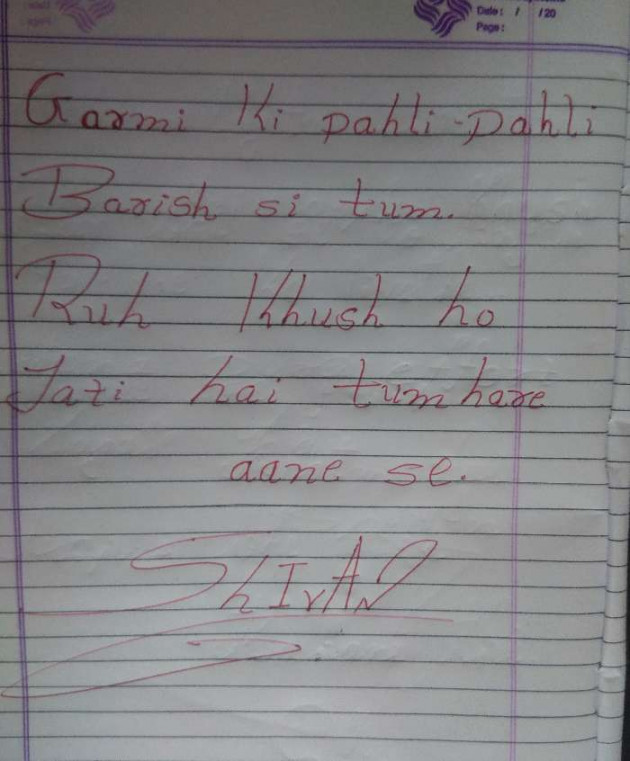 Date: / /20
Page:
Garmi Ki pahli-pahli
Barish si tum.
Ruh Khush ho
Jati hai tumhare
aane se.
ShIvAN